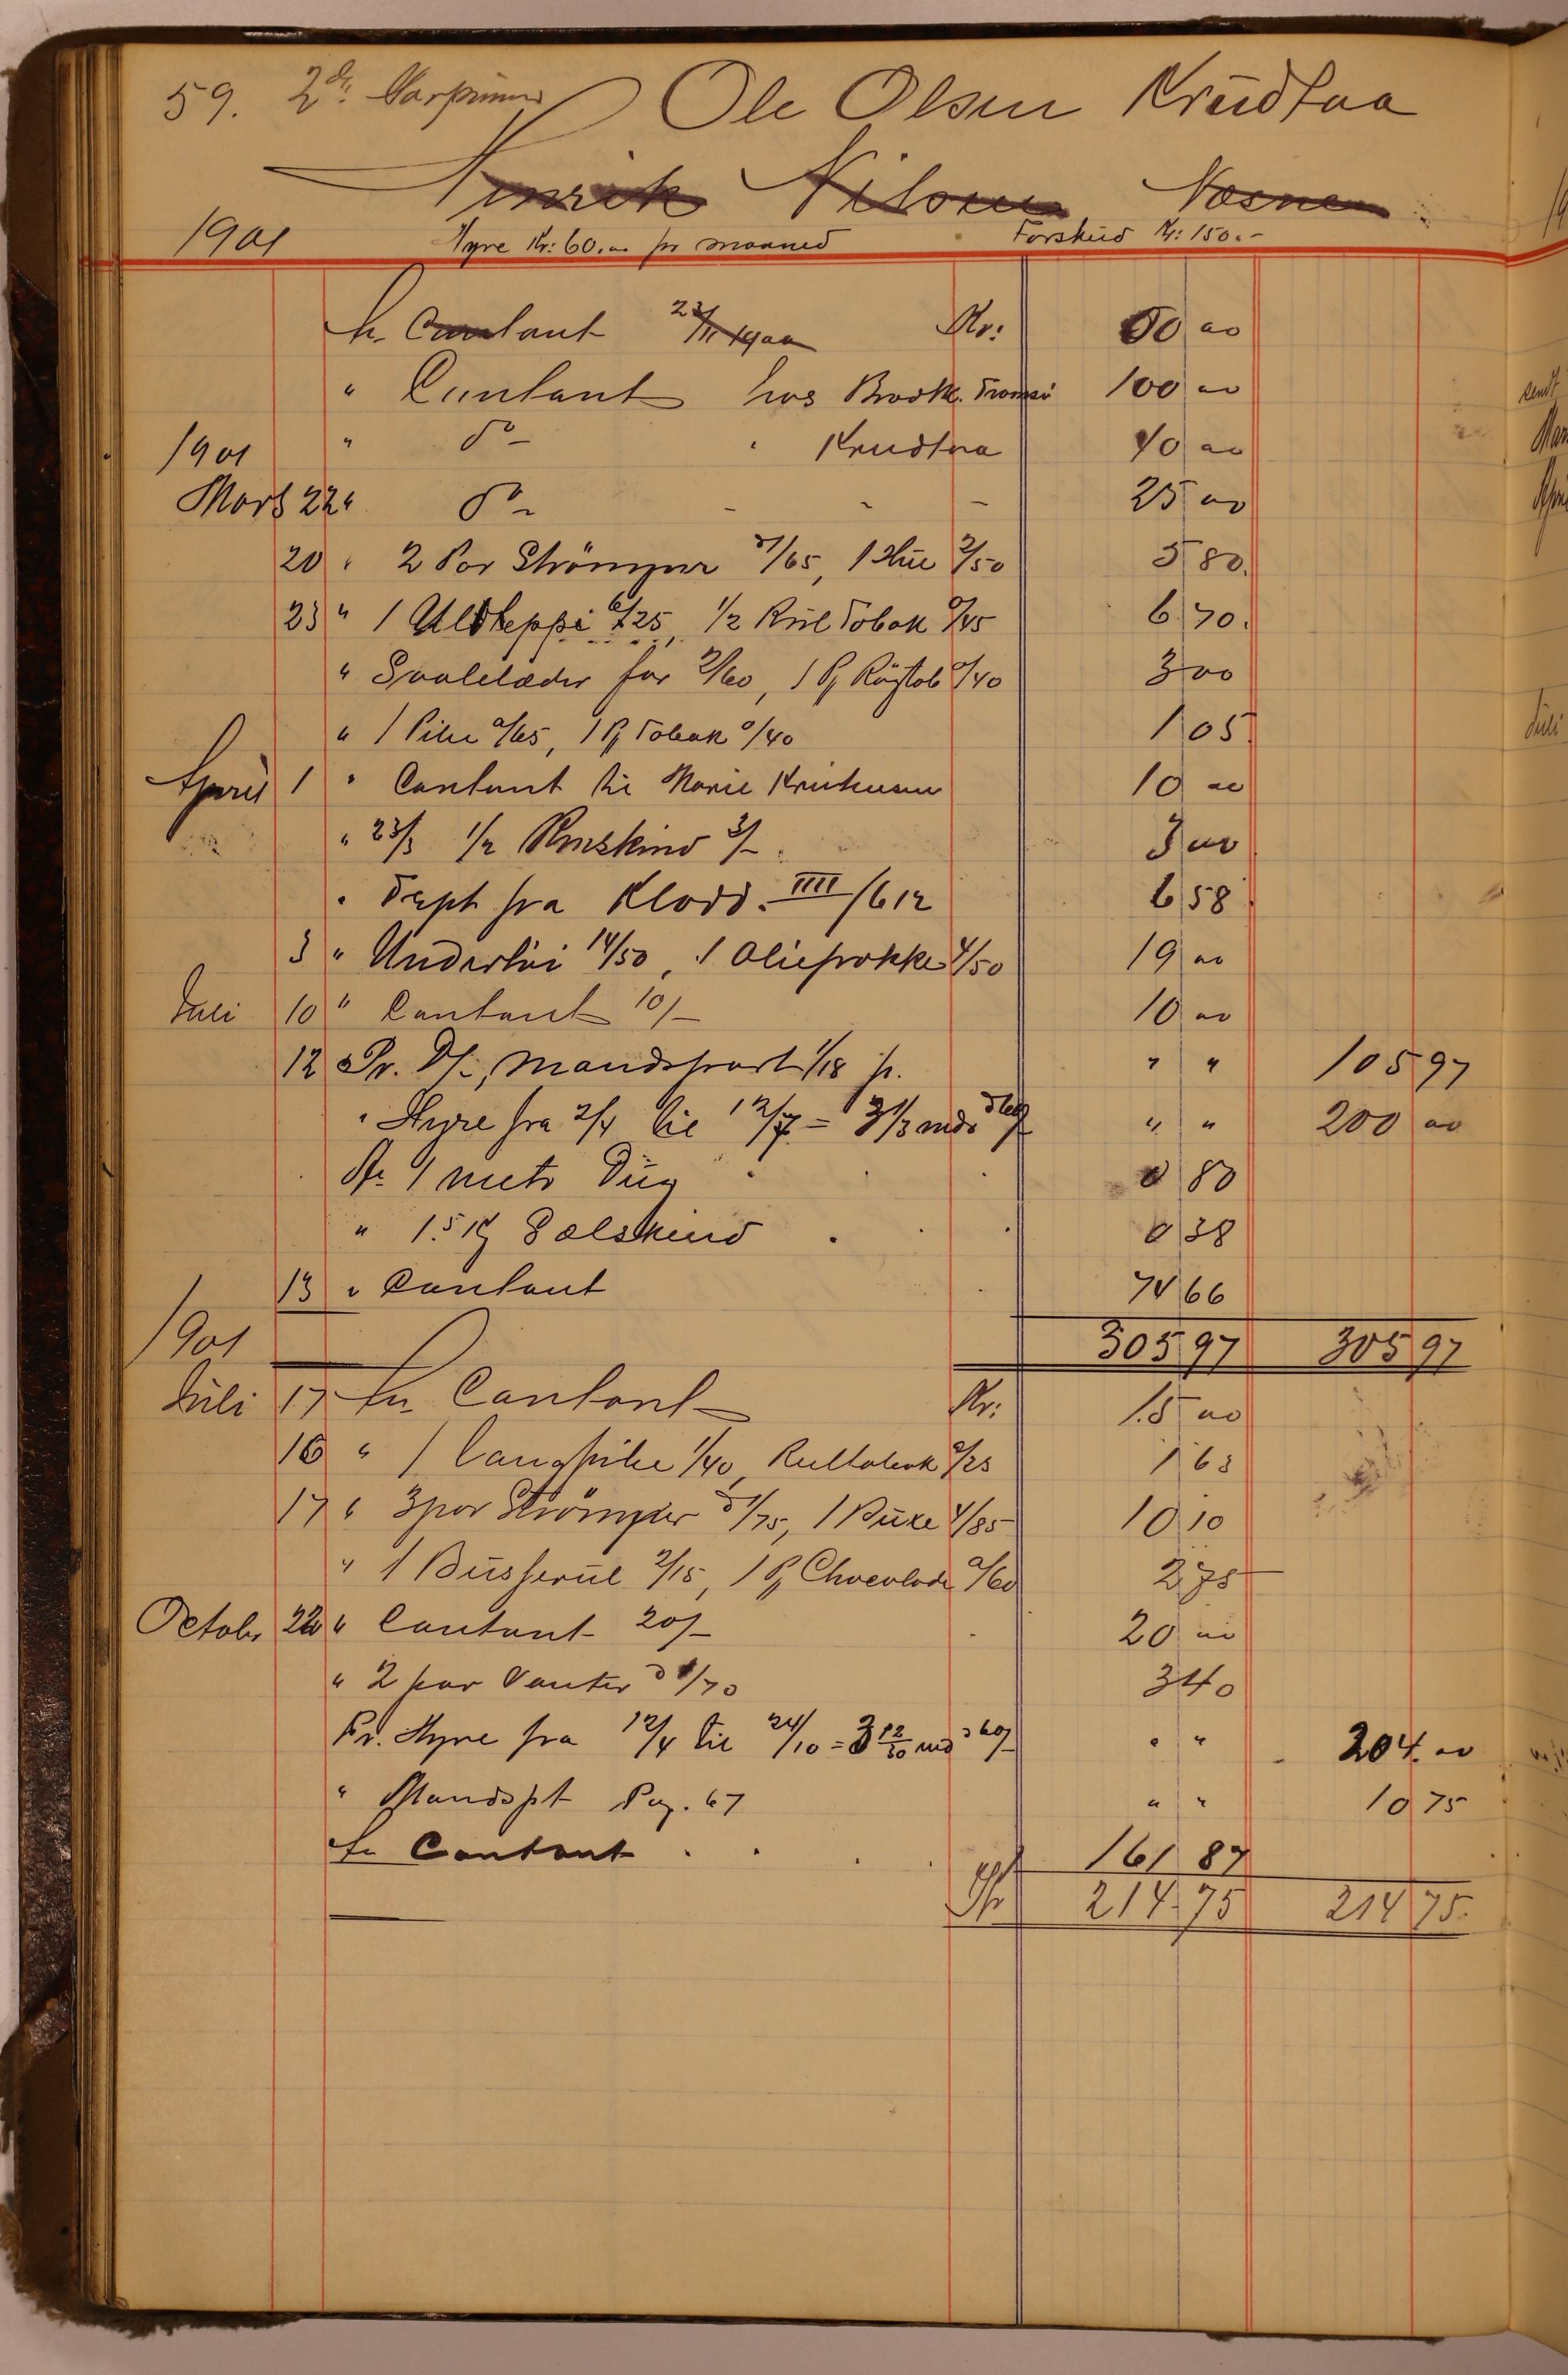 59. 2de Harpuner Ole Olsen Krüdtaa
Henrik Nilsen Næsne
1901 Hyre Kr: 60.00 pr maaned Forskud Kr: 150.-
An Contant 23/11 1900 Kr: 50 00
" Contant hos Brodtk. Tromsö 100 00
1901 " do - " Krudtaa 40 00
Marts 22 " do - - - - 25 00
20 " 2 Par Strömper à 1/65, 1 Hue 2/50 5 80.
23 " 1 Uldteppe 6/25, 1/2 Rul Tobak 0/45 6 70.
" Saalelæder for 2/60, 1 Pk Rögtob 0/40 3 00
" 1 Pibe 0/65, 1 Pk Tobak 0/40 1 05.
April 1 " Contant til Marie 10 00
" 23/3 1/2 Renskind 3/- 3 00
" Tapt fra Klodd. IIII/612 6 58
3 " Undertöi 14/50, 1 Oliefrokke 4/50 19 00
Juli 10 " Contant 10/- 10 00
12 Pr. D/-, Mandspart 1/18 p. " " 105 97
" Hyre fra 2/4 til 12/7 = 3 1/3 md à 60/- " " 200 00
An 1 metr Dug 0 80
" 1.5 Kg Sælskind 0 38
13 " Contant 74 66
1901 305 97 305 97
Juli 17 An Contant Kr: 15 00
16 " 1 Langpibe 1/40, Rultobak 0/23 1 63
17 " 3 par Strömper à 1/75, 1 Buxe 4/85 10 10
" 1 Busserul 2/15, 1 Pk Chocolade 0/60 2 75
Octobr 22 " Contant 20/- 20 00
" 2 par Vanter à 1/70 3 40
Pr. Hyre fra 12/7 til 24/10 = 3 12/30 md à 60/- " " 204.00
" Mandspt Pag. 67 " " 10 75
An Contant 161 87
Kr 214.75 214 75.